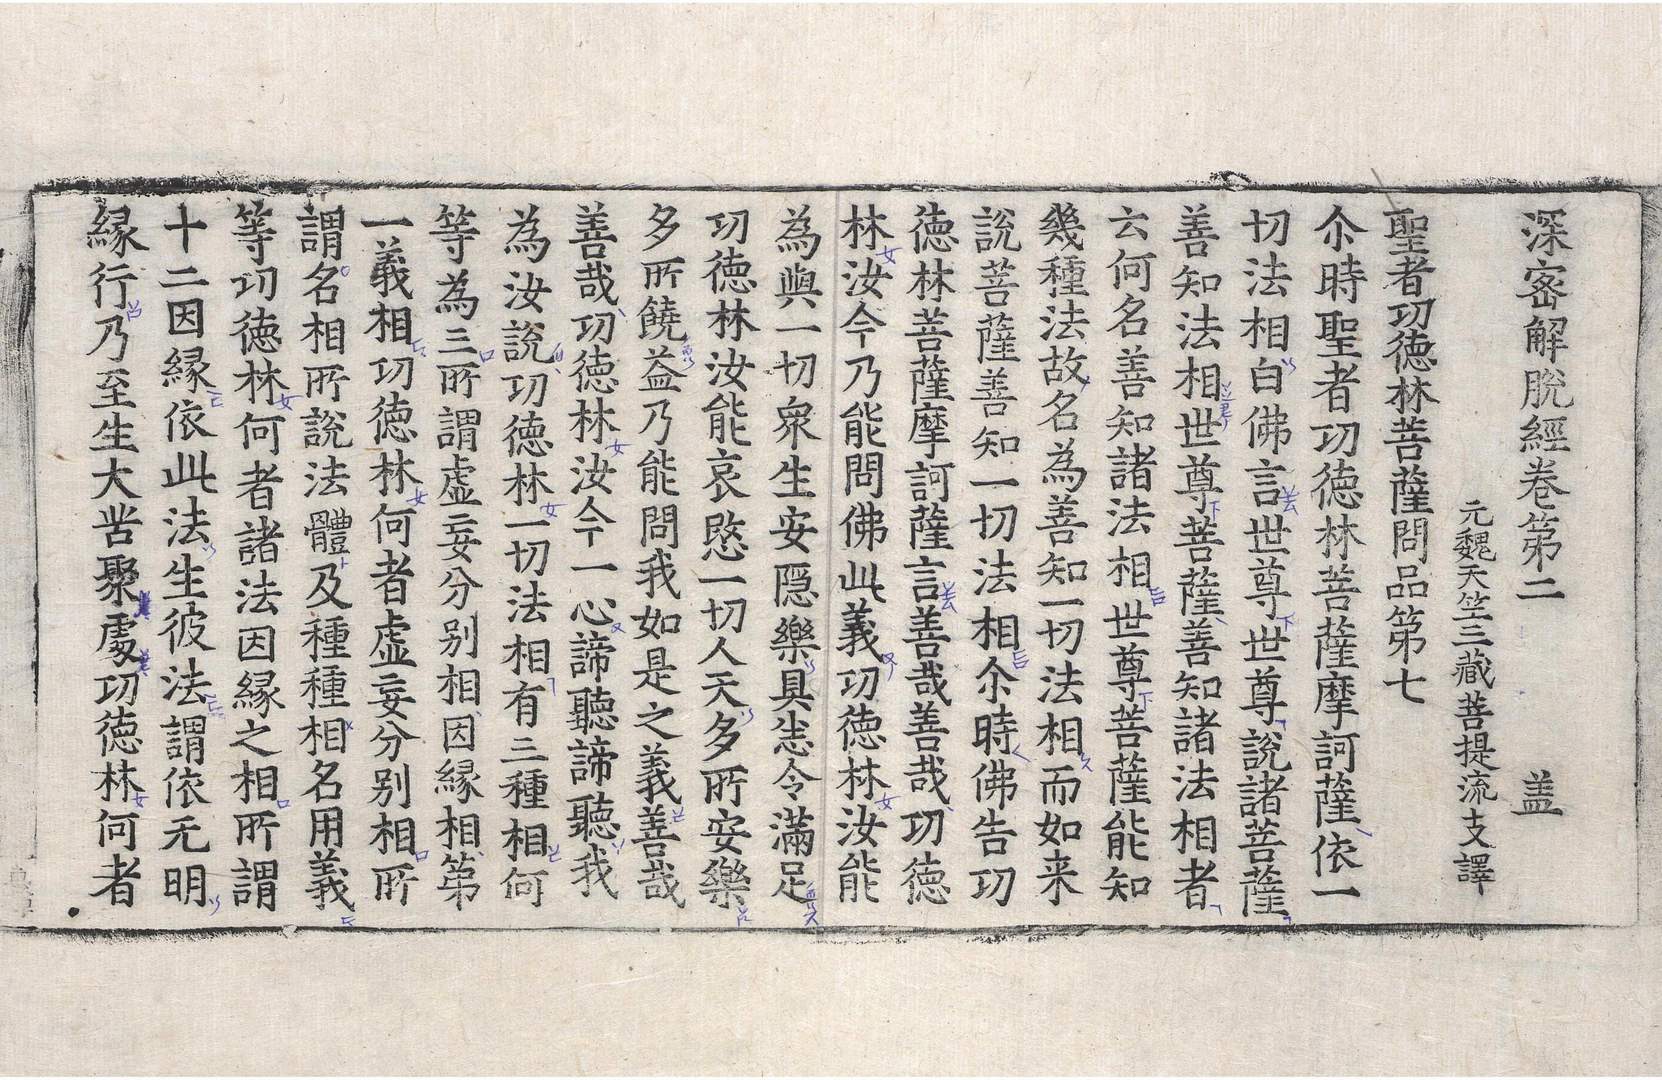 深密解脫經卷第二 盖
元魏天竺三藏菩提流支譯
聖者功德林菩薩問品第七
尒時聖者功德林菩薩摩訶薩依一
切法相白佛言世尊世尊說諸菩薩
善知法相世尊菩薩善知諸法相者
云何名善知諸法相世尊菩薩能知
幾種法故名為善知一切法相而如来
說菩薩善知一切法相尒時佛告功
德林菩薩摩訶薩言善哉善哉功德
林汝今乃能問佛此義功德林汝能
為與一切衆生安隱樂具恙令滿足
功德林汝能哀愍一切人天多所安樂
多所饒益乃能問我如是之義善哉
善哉功德林汝今一心諦聽諦聽我
為汝說功德林一切法相有三種相何
等為三所謂虛妄分别相因縁相第
一義相功德林何者虛妄分别相所
謂名相所說法體及種種相名用義
等功德林何者諸法因縁之相所謂
十二因縁依此法生彼法謂依无明
縁行乃至生大苦聚處功德林何者